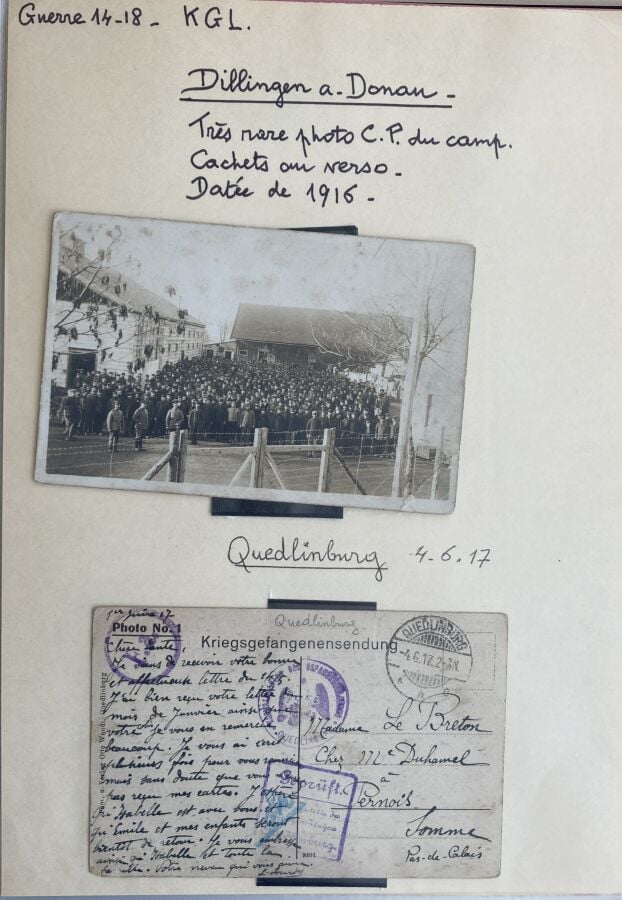 Guerre 14-18 - KGL.
Dillingen a-Donau -
Très rare photo C.P. du camp.
Cachets au verso -
Datée de 1916 -
Quedlinburg 4.6.17
Quedlinburg
1er Juin 17
Photo No. 1
Kriegsgefangenensendung
QUEDLINBURG
4.6.17.2-3N.
Chère tante,
Je viens de recevoir votre bonne
et affectueuse lettre du
J'ai bien reçu votre lettre du
mois de Janvier ainsi que
votre je vous en remercie
beaucoup. Je vous ai écrit
plusieurs fois pour vous
mais sans doute que vous
pas reçu mes cartes. J'espère
qu'Isabelle est avec vous et
qu'Emile et mes enfants seront
bientôt de retour. Je vous embrasse
ainsi qu'Isabelle et toute la
famille. Votre neveu qui vous aime
Madame Le Breton
Chez Mr Duhamel
à
Pernois
Somme
Pas-de-Calais
QUEDLINBURG
Geprüft.